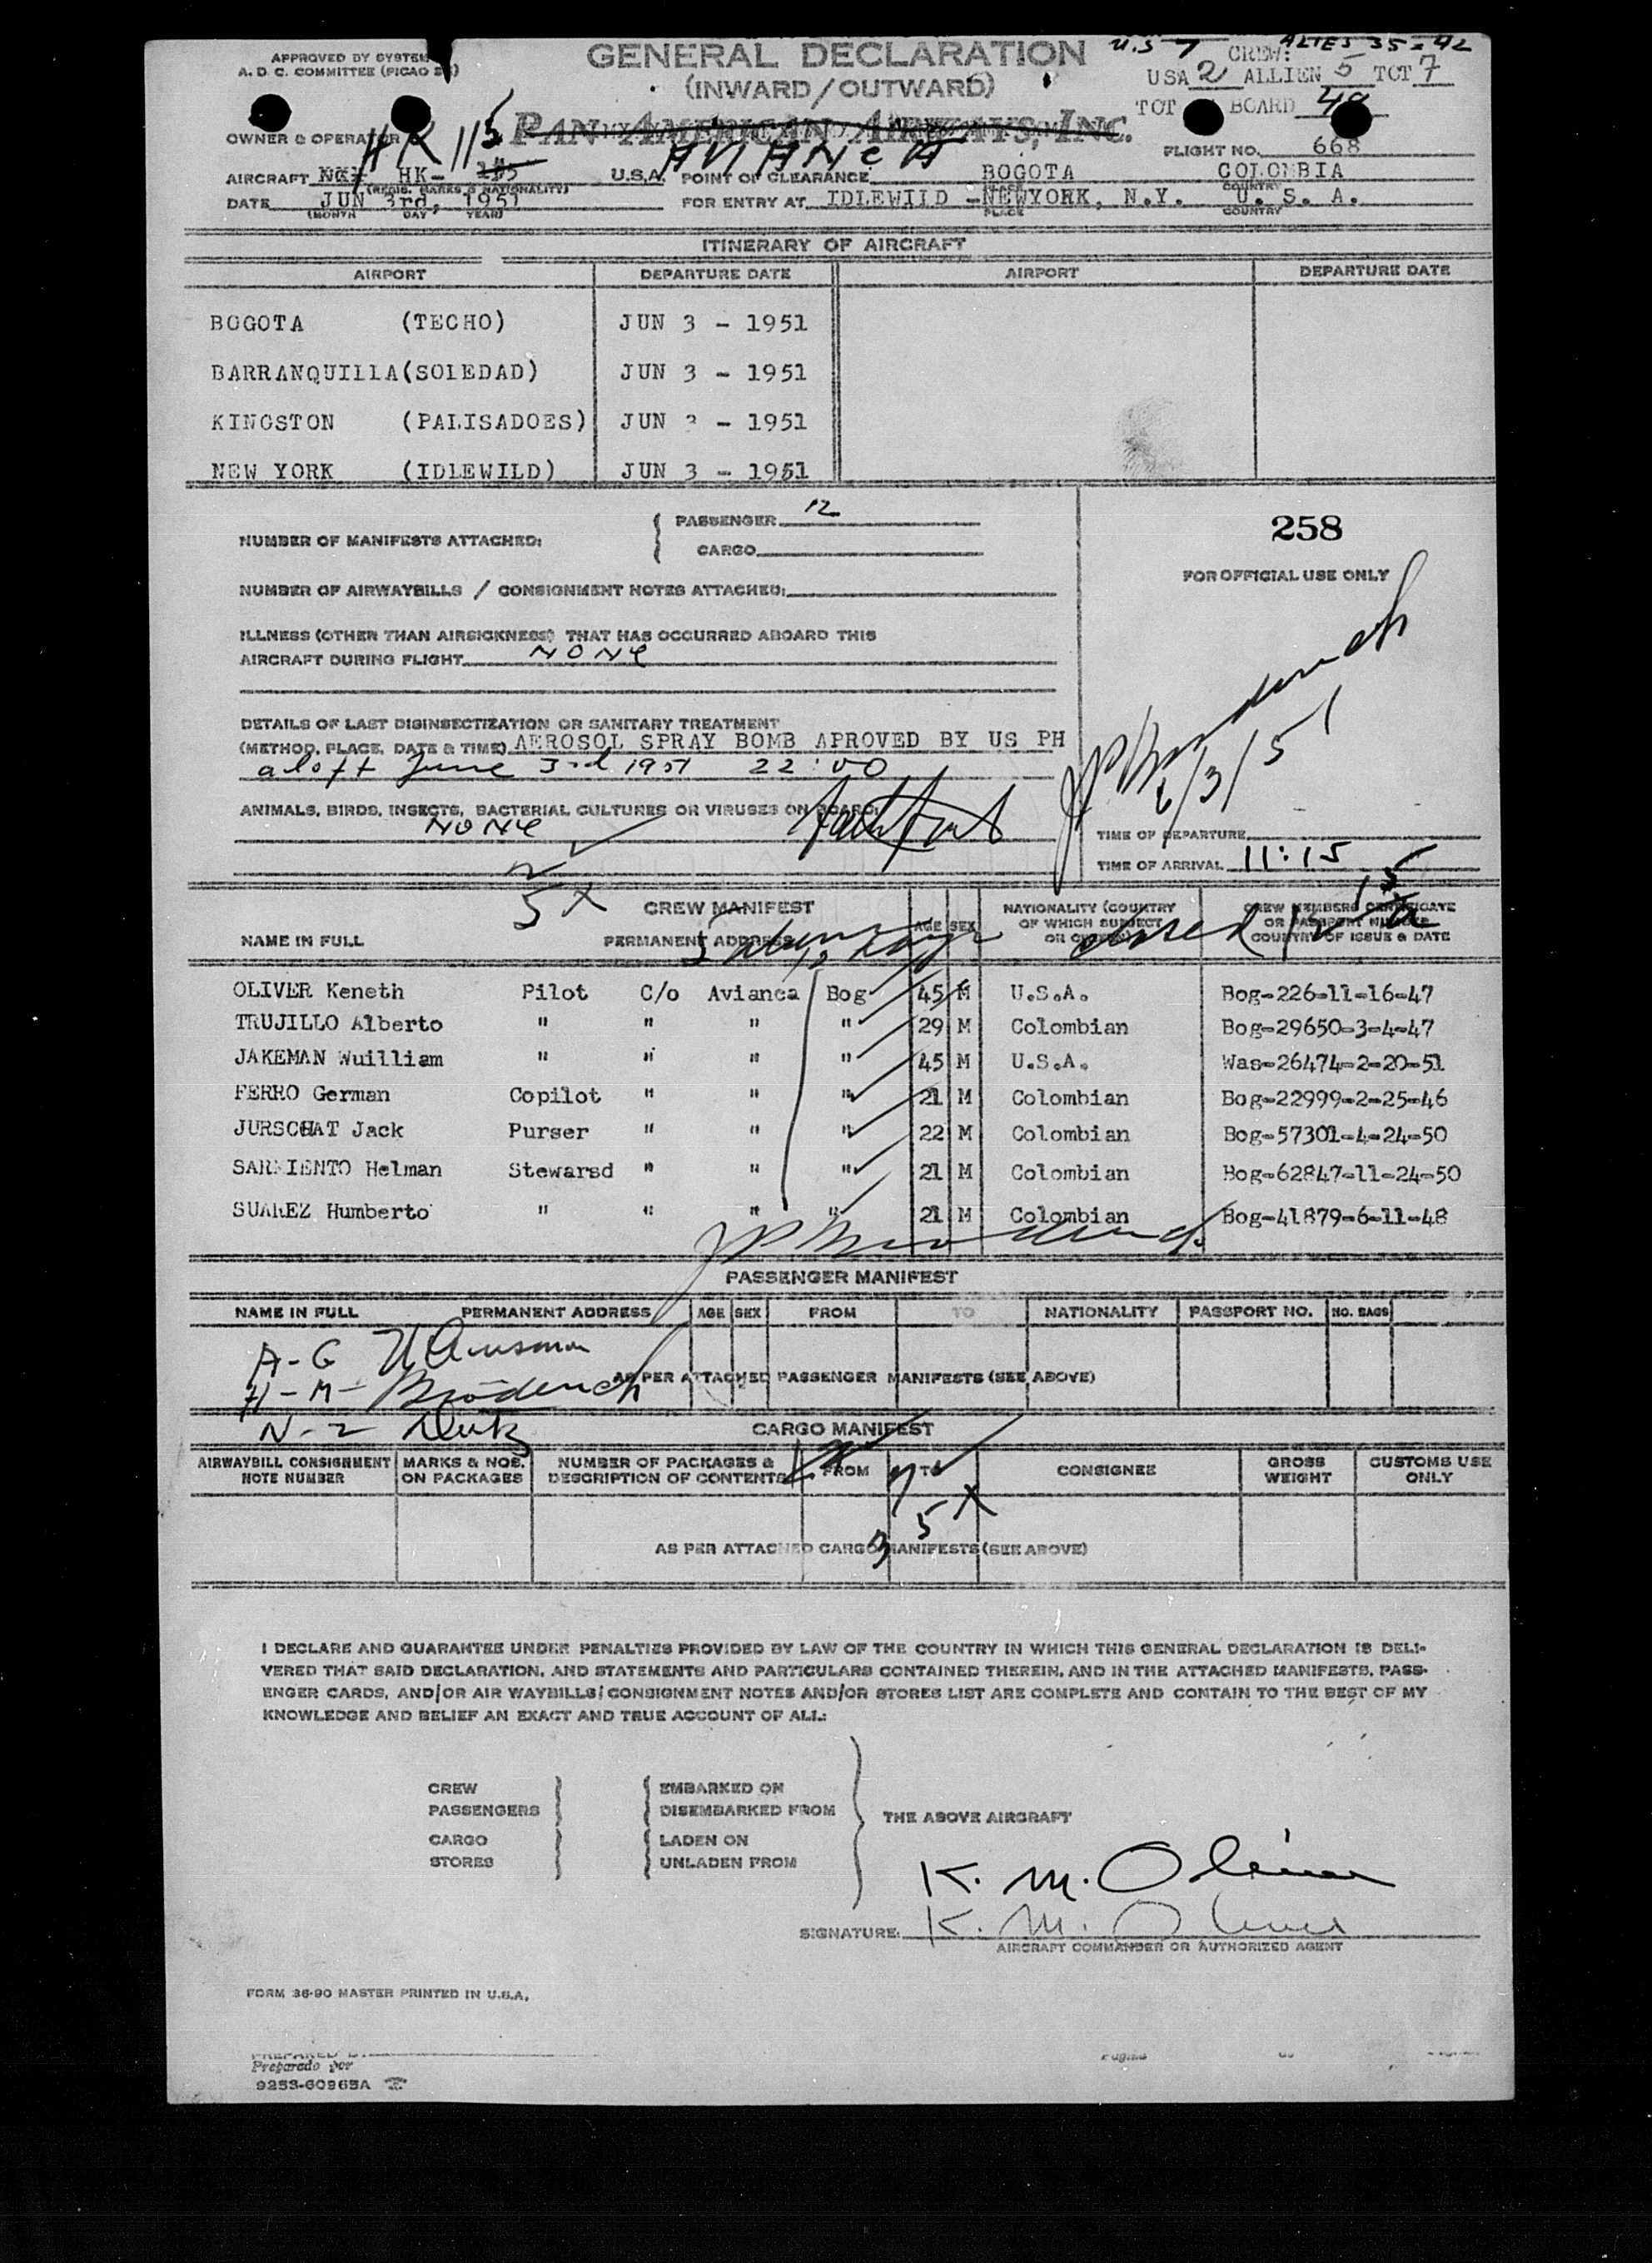 APPROVED BY SYSTEM
A. D. C. COMMITTEE (PICAO
GENERAL DECLARATION
(INWARD/OUTWARD)
U.S 7 ALIES 35 = 42
CREW:
USA 2 ALLIEN 5 TOT 7
TOT BOARD 49
OWNER & OPERATOR
PAN AMERICAN AIRWAYS, INC.
HK 115 AVIANCA
FLIGHT NO. 668
AIRCRAFT HK- U.S.A. POINT OF CLEARANCE BOGOTA COLOMBIA
(REGIS. MARKS & NATIONALITY) PLACE COUNTRY
DATE JUN 3rd, 1951 FOR ENTRY AT IDLEWILD -NEWYORK, N.Y. U. S. A.
(MONTH DAY YEAR) PLACE COUNTRY
ITINERARY OF AIRCRAFT
AIRPORT DEPARTURE DATE AIRPORT DEPARTURE DATE
BOGOTA (TECHO) JUN 3 - 1951
BARRANQUILLA(SOLEDAD) JUN 3 - 1951
KINGSTON (PALISADOES) JUN 3 - 1951
NEW YORK (IDLEWILD) JUN 3 - 1951
NUMBER OF MANIFESTS ATTACHED:
PASSENGER 12
CARGO
258
FOR OFFICIAL USE ONLY
NUMBER OF AIRWAYBILLS / CONSIGNMENT NOTES ATTACHED:
ILLNESS (OTHER THAN AIRSICKNESS) THAT HAS OCCURRED ABOARD THIS
AIRCRAFT DURING FLIGHT NONE
DETAILS OF LAST DISINSECTIZATION OR SANITARY TREATMENT
(METHOD, PLACE, DATE & TIME) AEROSOL SPRAY BOMB APROVED BY US PH
aloft June 3rd 1951 22:00
6/3/51
ANIMALS, BIRDS, INSECTS, BACTERIAL CULTURES OR VIRUSES ON BOARD:
NONE
TIME OF DEPARTURE
TIME OF ARRIVAL 11:15
5 X
CREW MANIFEST
NAME IN FULL PERMANENT ADDRESS AGE SEX NATIONALITY (COUNTRY OF WHICH SUBJECT OR CITIZEN) CREW MEMBERS CERTIFICATE OR PASSPORT NUMBER COUNTRY OF ISSUE & DATE
OLIVER Keneth Pilot C/o Avianca Bog 45 M U.S.A. Bog-226-11-16-47
TRUJILLO Alberto " " " " 29 M Colombian Bog-29650-3-4-47
JAKEMAN Wuilliam " " " " 45 M U.S.A. Was-26474-2-20-51
FERRO German Copilot " " " 21 M Colombian Bog-22999-2-25-46
JURSCHAT Jack Purser " " " 22 M Colombian Bog-57301-4-24-50
SARMIENTO Helman Stewarsd " " " 21 M Colombian Bog-62847-11-24-50
SUAREZ Humberto " " " " 21 M Colombian Bog-41879-6-11-48
PASSENGER MANIFEST
NAME IN FULL PERMANENT ADDRESS AGE SEX FROM TO NATIONALITY PASSPORT NO. NO. BAGS
A-G
AS PER ATTACHED PASSENGER MANIFESTS (SEE ABOVE)
H-M- Broderick
N-Z
CARGO MANIFEST
AIRWAYBILL CONSIGNMENT NOTE NUMBER MARKS & NOS. ON PACKAGES NUMBER OF PACKAGES & DESCRIPTION OF CONTENTS FROM TO CONSIGNEE GROSS WEIGHT CUSTOMS USE ONLY
35 X
AS PER ATTACHED CARGO MANIFESTS (SEE ABOVE)
I DECLARE AND GUARANTEE UNDER PENALTIES PROVIDED BY LAW OF THE COUNTRY IN WHICH THIS GENERAL DECLARATION IS DELI-
VERED THAT SAID DECLARATION, AND STATEMENTS AND PARTICULARS CONTAINED THEREIN, AND IN THE ATTACHED MANIFESTS, PASS-
ENGER CARDS, AND/OR AIR WAYBILLS/CONSIGNMENT NOTES AND/OR STORES LIST ARE COMPLETE AND CONTAIN TO THE BEST OF MY
KNOWLEDGE AND BELIEF AN EXACT AND TRUE ACCOUNT OF ALL:
CREW EMBARKED ON
PASSENGERS DISEMBARKED FROM
THE ABOVE AIRCRAFT
CARGO LADEN ON
STORES UNLADEN FROM
K. M. Oliver
SIGNATURE: K. M. Oliver
AIRCRAFT COMMANDER OR AUTHORIZED AGENT
FORM 36-90 MASTER PRINTED IN U.S.A.
PREPARED BY
Preparado por
9253-60965A